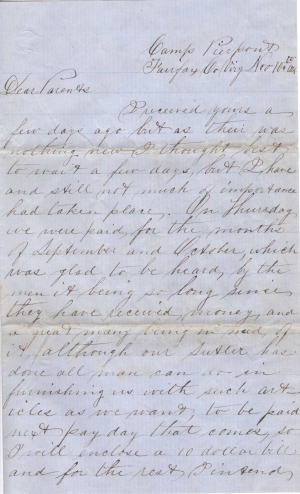 Camp Pierpont
Fairfax Co Virg Nov 10th
Dear Parents
I received yours a
few days ago but as their was
nothing new I thought best
to wait a few days, but I have
and still not much of importance
had taken place. On Thursday
we were paid, for the months
of September and October, which
was glad to be heard, by the
men it being so long since
they have received money, and
a great many being in need of
it, although our Sutler has
done all man can do in
furnishing us with such art-
icles as we want, to be paid
next pay day that comes, so
I will enclose a 10 dollar bill
and for the rest I intend